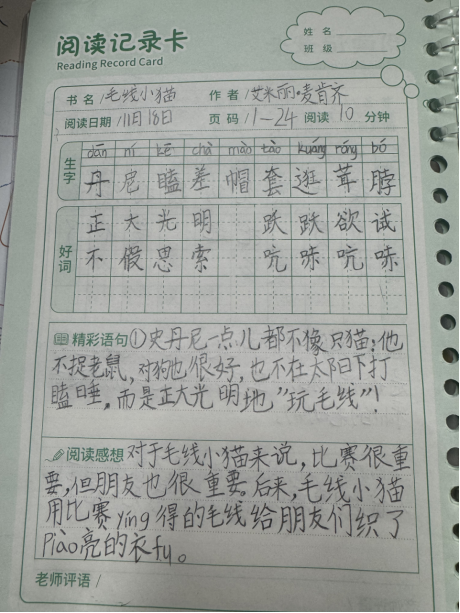 阅读记录卡
Reading Record Card
姓名
班级
书名 毛线小猫 作者 艾米丽·麦肯齐
阅读日期 11月18日 页码 11—24 阅读 10 分钟
生字
dān ní kē chà mào tào kuáng róng bó
丹 尼 瞌 差 帽 套 逛 茸 脖
好词
正 大 光 明 跃 跃 欲 试
不 假 思 索 吭 哧 吭 哧
精彩语句 ①史丹尼一点儿都不像只猫;他
不捉老鼠,对狗也很好,也不在太阳下打
瞌睡。而是正大光明地"玩毛线"!
阅读感想 对于毛线小猫来说,比赛很重
要,但朋友也很重要。后来,毛线小猫
用比赛yíng得的毛线给朋友们织了
Piào亮的衣fu。
老师评语 /